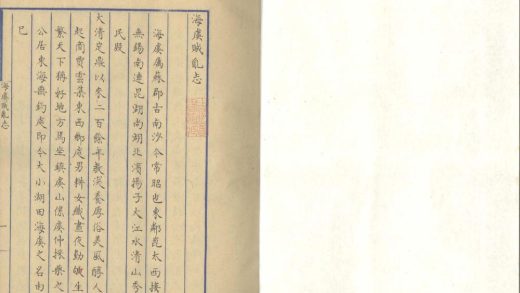 海虞賊亂志
海虞属蘇郡古南沙今常昭也東鄰崑太西接
無錫南連昆湖尚湖北濱揚子大江水清山秀
民殷
大清定鼎以來二百餘年教澤養厚俗美風醇人
起商賈雲集東西鄉處男耕女織晝夜勤生
繁天下稱好地方焉坐鎮虞山係虞仲採藥之
公居東海無釣處即今大小湖田海虞之名由
已
海虞賊亂志
一